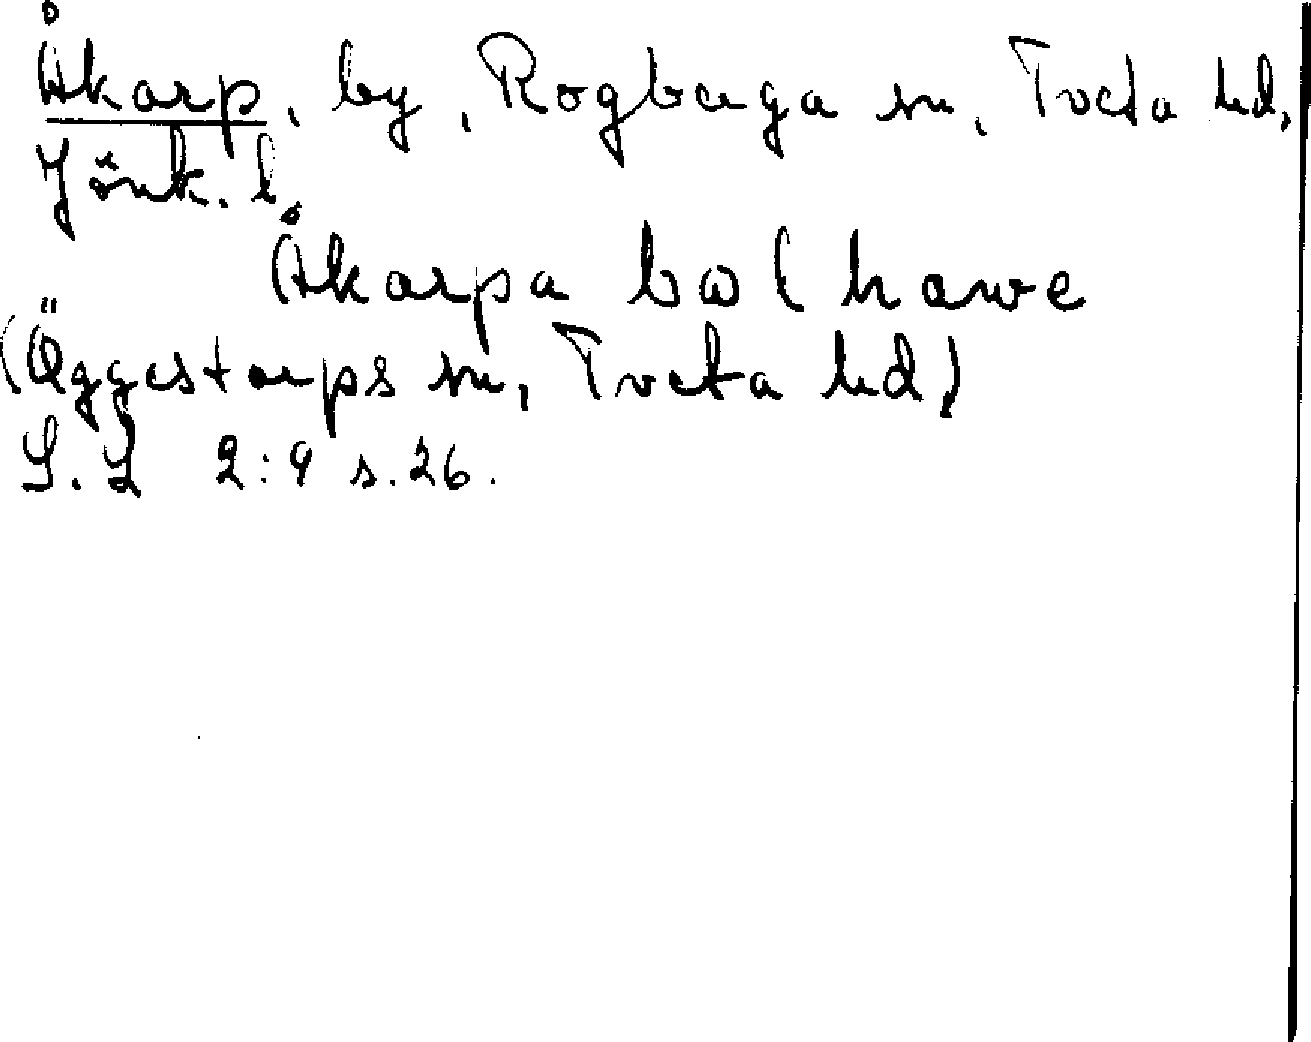 Åkarp, by, Rogberga sn, Tveta hd,
Jönk. l.
Åkarpa bol hawe
(Öggestorps sn, Tveta hd)
S.L 2:9 s.26.